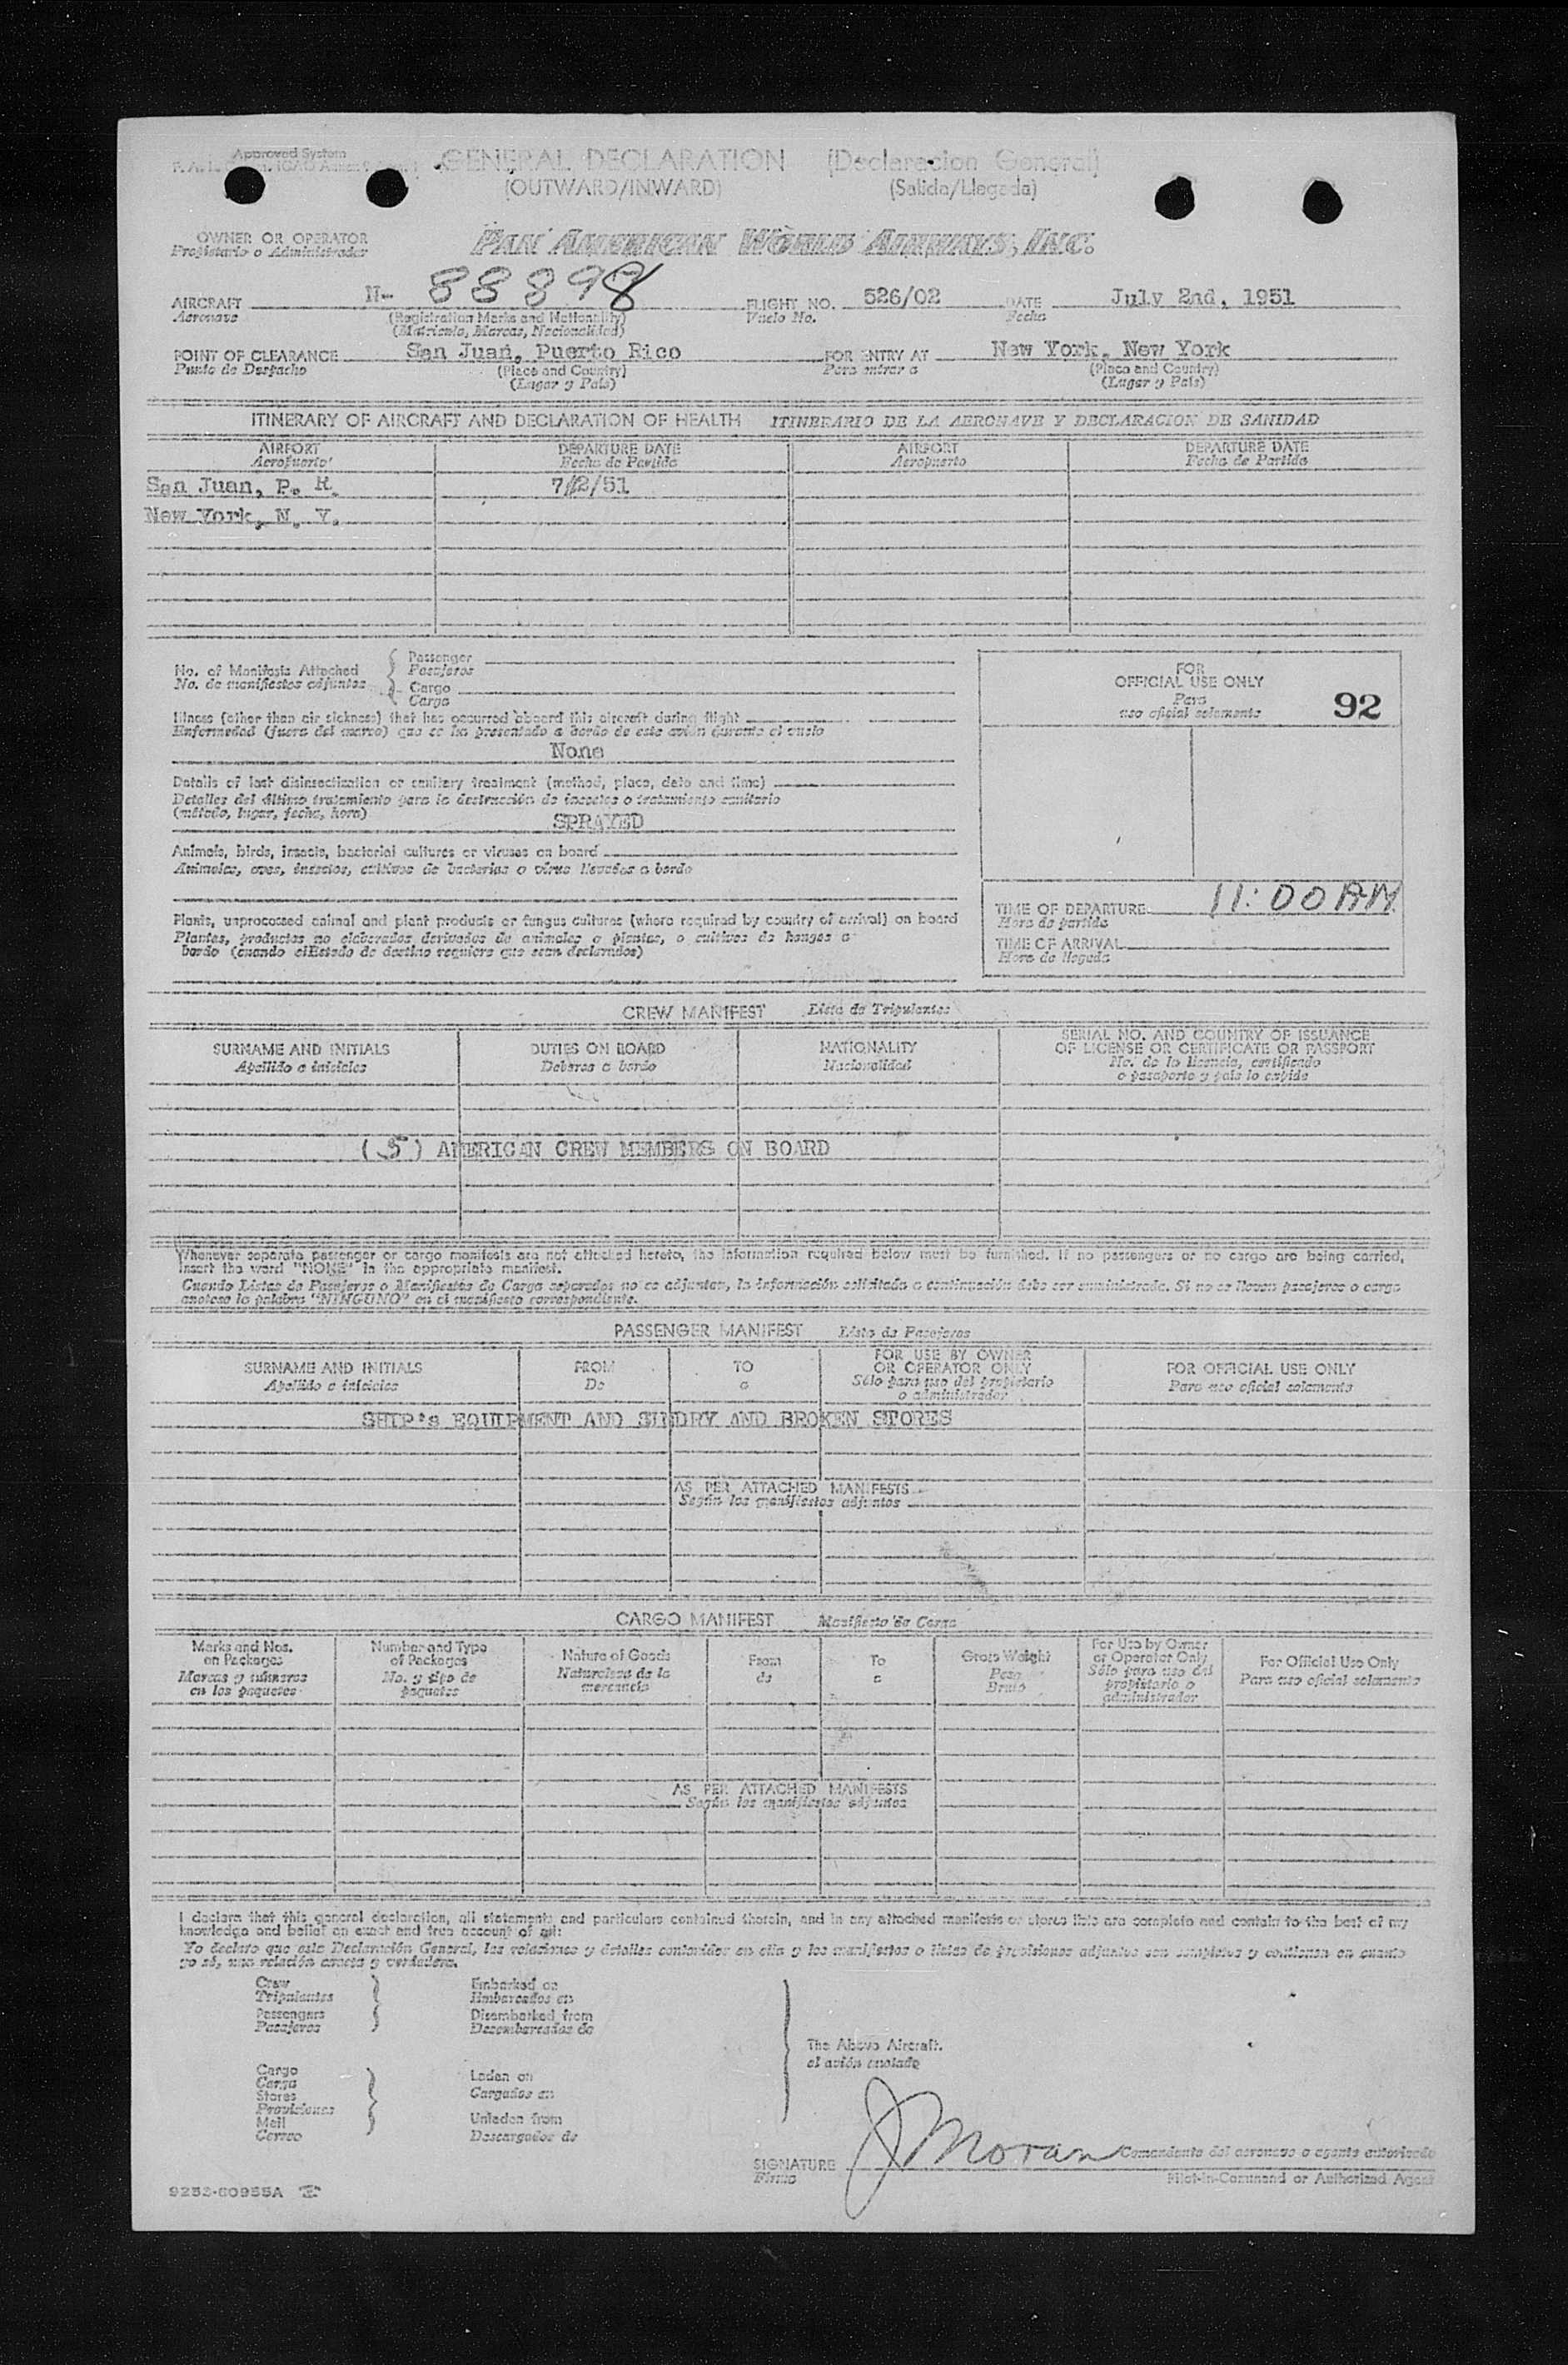 Approved System
GENERAL DECLARATION (Declaracion General)
(OUTWARD/INWARD) (Salida/Llegada)
OWNER OR OPERATOR PAN AMERICAN WORLD AIRWAYS, INC.
Propietario o Administrador
AIRCRAFT N- 88898 FLIGHT NO. 526/02 DATE July 2nd, 1951
Aeronave (Registration Marks and Nationality) Vuelo No. Fecha
(Matricula, Marcas, Nacionalidad)
POINT OF CLEARANCE San Juan, Puerto Rico FOR ENTRY AT New York, New York
Punto de Despacho (Place and Country) Para entrar a (Place and Country)
(Lugar y País) (Lugar y País)
ITINERARY OF AIRCRAFT AND DECLARATION OF HEALTH ITINERARIO DE LA AERONAVE Y DECLARACION DE SANIDAD
AIRPORT DEPARTURE DATE AIRPORT DEPARTURE DATE
Aeropuerto Fecha de Partida Aeropuerto Fecha de Partida
San Juan, P. R. 7/2/51
New York, N. Y.
No. of Manifests Attached Passenger
No. de manifiestos adjuntos Pasajeros
Cargo
Carga
FOR
OFFICIAL USE ONLY
Para
uso oficial solamente 92
Illness (other than air sickness) that has occurred aboard this aircraft during flight
Enfermedad (fuera del mareo) que se ha presentado a bordo de este avión durante el vuelo
None
Details of last disinsectization or sanitary treatment (method, place, date and time)
Detalles del último tratamiento para la destrucción de insectos o tratamiento sanitario
(método, lugar, fecha, hora)
SPRAYED
Animals, birds, insects, bacterial cultures or viruses on board
Animales, aves, insectos, cultivos de bacterias o virus llevados a bordo
Plants, unprocessed animal and plant products or fungus cultures (where required by country of arrival) on board
Plantas, productos no elaborados derivados de animales o plantas, o cultivos de hongos a
bordo (cuando elEstado de destino requiera que sean declarados)
TIME OF DEPARTURE 11:00AM
Hora de partida
TIME OF ARRIVAL
Hora de llegada
CREW MANIFEST Lista de Tripulantes
SURNAME AND INITIALS DUTIES ON BOARD NATIONALITY SERIAL NO. AND COUNTRY OF ISSUANCE
OF LICENSE OR CERTIFICATE OR PASSPORT
Apellido e iniciales Deberes a bordo Nacionalidad No. de la licencia, certificado
o pasaporte y país lo expide
(5) AMERICAN CREW MEMBERS ON BOARD
Whenever separate passenger or cargo manifests are not attached hereto, the information required below must be furnished. If no passengers or no cargo are being carried,
insert the word "NONE" in the appropriate manifest.
Cuando Listas de Pasajeros o Manifiestos de Carga separados no se adjuntan, la información solicitada a continuación debe ser suministrada. Si no se llevan pasajeros o carga
anotese la palabra "NINGUNO" en el manifiesto correspondiente.
PASSENGER MANIFEST Lista de Pasajeros
SURNAME AND INITIALS FROM TO FOR USE BY OWNER
OR OPERATOR ONLY FOR OFFICIAL USE ONLY
Apellido e iniciales De a Sólo para uso del propietario
o administrador Para uso oficial solamente
SHIP's EQUIPMENT AND SUNDRY AND BROKEN STORES
AS PER ATTACHED MANIFESTS
Según los manifiestos adjuntos
CARGO MANIFEST Manifiesto de Carga
Marks and Nos.
on Packages
Marcas y números
en los paquetes
Number and Type
of Packages
No. y tipo de
paquetes
Nature of Goods
Naturaleza de la
mercancía
From
de
To
a
Gross Weight
Peso
Bruto
For Use by Owner
or Operator Only
Sólo para uso del
propietario o
administrador
For Official Use Only
Para uso oficial solamente
AS PER ATTACHED MANIFESTS
Según los manifiestos adjuntos
I declare that this general declaration, all statements and particulars contained therein, and in any attached manifests or stores lists are complete and contain to the best of my
knowledge and belief an exact and true account of all:
Yo declaro que esta Declaración General, las relaciones y detalles contenidos en ella y los manifiestos o listas de provisiones adjuntos son completos y contienen en cuanto
yo sé, una relación exacta y verdadera.
Crew
Tripulantes
Passengers
Pasajeros
Embarked on
Embarcados en
Disembarked from
Desembarcados de
The Above Aircraft.
el avión anotado
Cargo
Carga
Stores
Provisiones
Mail
Correo
Laden on
Cargados en
Unladen from
Descargados de
SIGNATURE J Moran Comandante del aeronave o agente autorizado
Firma Pilot-in-Command or Authorized Agent
9252-60955A